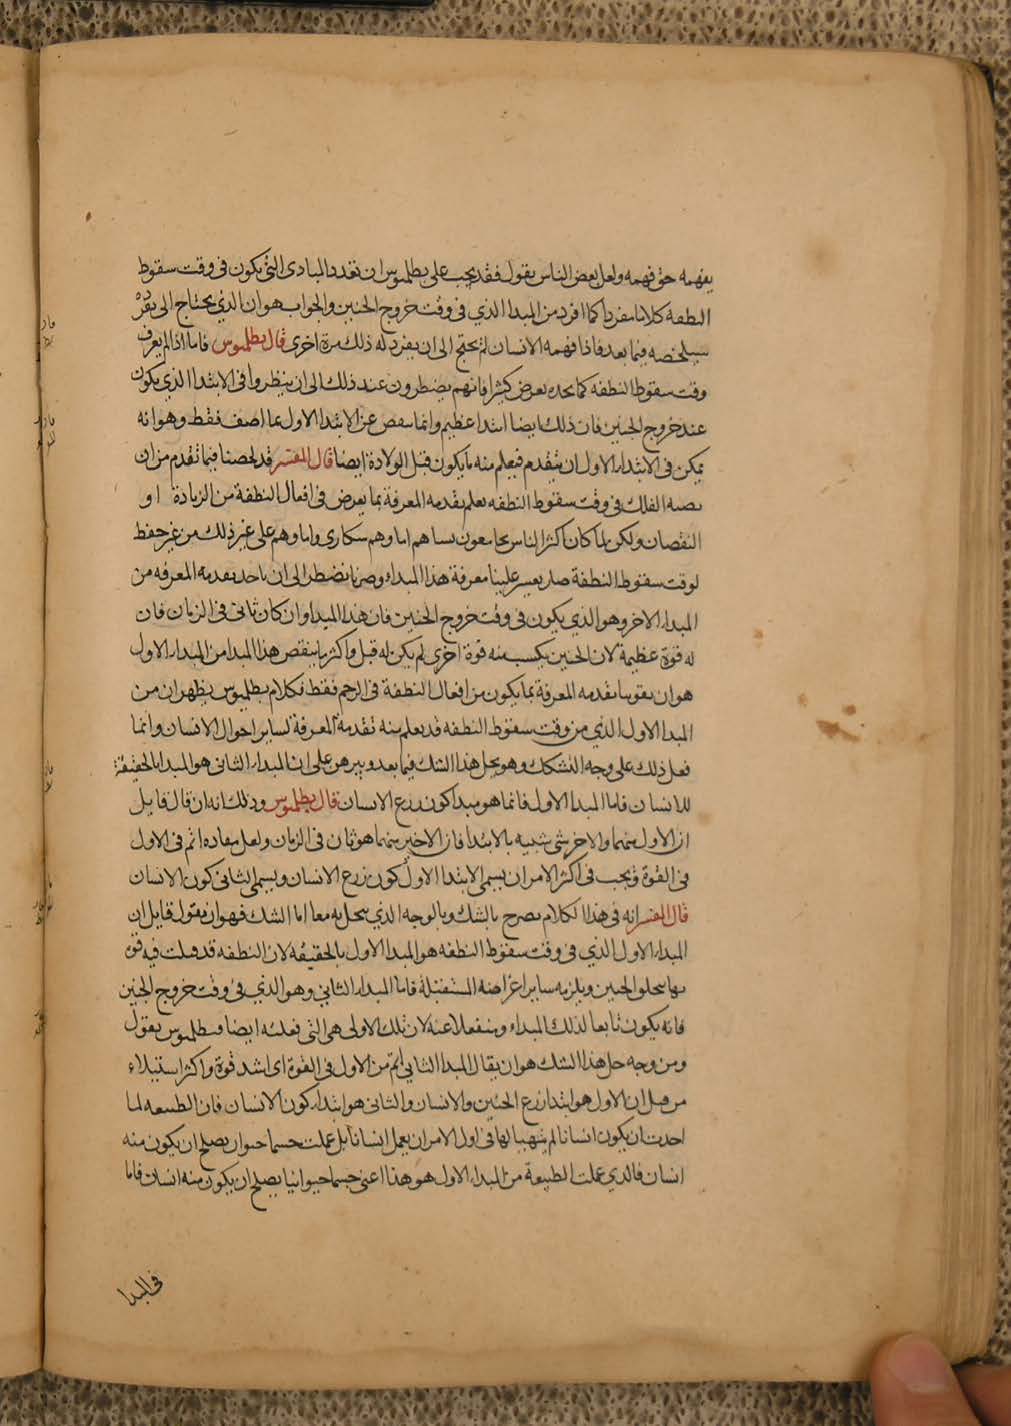 يفهمه حق فهمه ولعل بعض الناس يقول فقد يجب على بطلميوس ان تعدد المبادى التي يكون في وقت سقوط
النطفة كلاما مفردا كما افرد من المبدا الذي في وقت خروج الجنين والجواب هو ان الذي يحتاج الى
سيلخصه فيما بعد فاذا فهمه الانسان لم يحتج الى ان يفرد له ذلك مرة اخرى قال بطلميوس فاما اذا لم يعرف
وقت سقوط النطفه كما نجده يعرض كثيرا فانهم يضطرون عند ذلك الى ان ينظروا في الابتدا الذي يكون
عند خروج الجنين فان ذلك ايضا ابتدا عظيم وانما ينقص عن الابتدا الاول بما اصف فقط وهو انه
يمكن في الابتداء الاول ان يتقدم فيعلم منه ما يكون قبل الولادة ايضا قال المفسر قد لخصنا فيما تقدم من ان
نصبه الفلك في وقت سقوط النطفه يعلم تقدمه المعرفة بما يعرض في افعال النطفة من الزيادة او
النقصان ولكن لما كان اكثر الناس يجامعون نساهم اما وهم سكارى واما وهم على غير ذلك من غير حفظ
لوقت سقوط النطفة صار يعسر علينا معرفة هذا المبداء وصرنا نضطر الى ان ناخذ تقدمه المعرفه من
المبداء الاخر وهو الذي يكون في وقت خروج الجنين فان هذا المبدا وان كان ثاني في الزمان فان
له قوة عظيمة لان الجنين يكسب منه قوة اخرى لم يكن له قبل واكثر ما ينقص هذا المبدا من المبداء الاول
هو ان يفوتنا تقدمه المعرفة بما يكون من افعال النطفة في الرحم فقط فكلام بطلميوس يظهر ان من
المبدا الاول الذي من وقت سقوط النطفه قد يعلم منه تقدمة المعرفة لساير احوال الانسان وانما
فعل ذلك على وجه التشكك وهو يحل هذا الشك فيما بعد ويبرهن على ان المبداء الثاني هو المبدا بالحقيقة
للانسان فاما المبدا الاول فانما هو مبدا كون زرع الانسان قال بطلميوس وذلك انه ان قال قايل
ان الاول منهما والاخر شي شبيه بالابتدا فان الاخير منهما هو ثان في الزمان ولعل مقاده اتم في الاول
في القوة ويجب في اكثر الامر ان يسمى الابتدا الاول كون زرع الانسان ويسمى الثاني كون الانسان
قال المفسر انه في هذا الكلام يصرح بالشك وبالوجه الذي ينحل به معا اما الشك فهو ان يقول قايل ان
المبداء الاول الذي في وقت سقوط النطفه هو المبدا الاول بالحقيقه لان النطفه قد قبلت فيه قوة
بها يتخلق الجنين ويلزمه ساير اعراضه المستقبلة فاما المبداء الثاني وهو الذي في وقت خروج الجنين
فانه يكون تابعا لذلك المبداء ومنفعلا عنه لان تلك الاولى هي التي فعلته ايضا فبطلميوس يقول
ومن وجه حل هذا الشك هو ان يقال المبدا الثاني اتم من الاول في القوة اى اشد قوة واكثر استيلاء
من قبل ان الاول هو ابتدا زرع الجنين والانسان والثاني هو ابتداء كون الانسان فان الطبيعه لما
احدثت ان يكون انسانا لم يتهيا لها في اول الامر ان يعمل انسانا بل عملت جسما حيوان يصلح ان يكون منه
انسان فالذي عملت الطبيعة من المبداء الاول هو هذا اعني جسما حيوانيا يصلح ان يكون منه انسان فاما
في المبدا